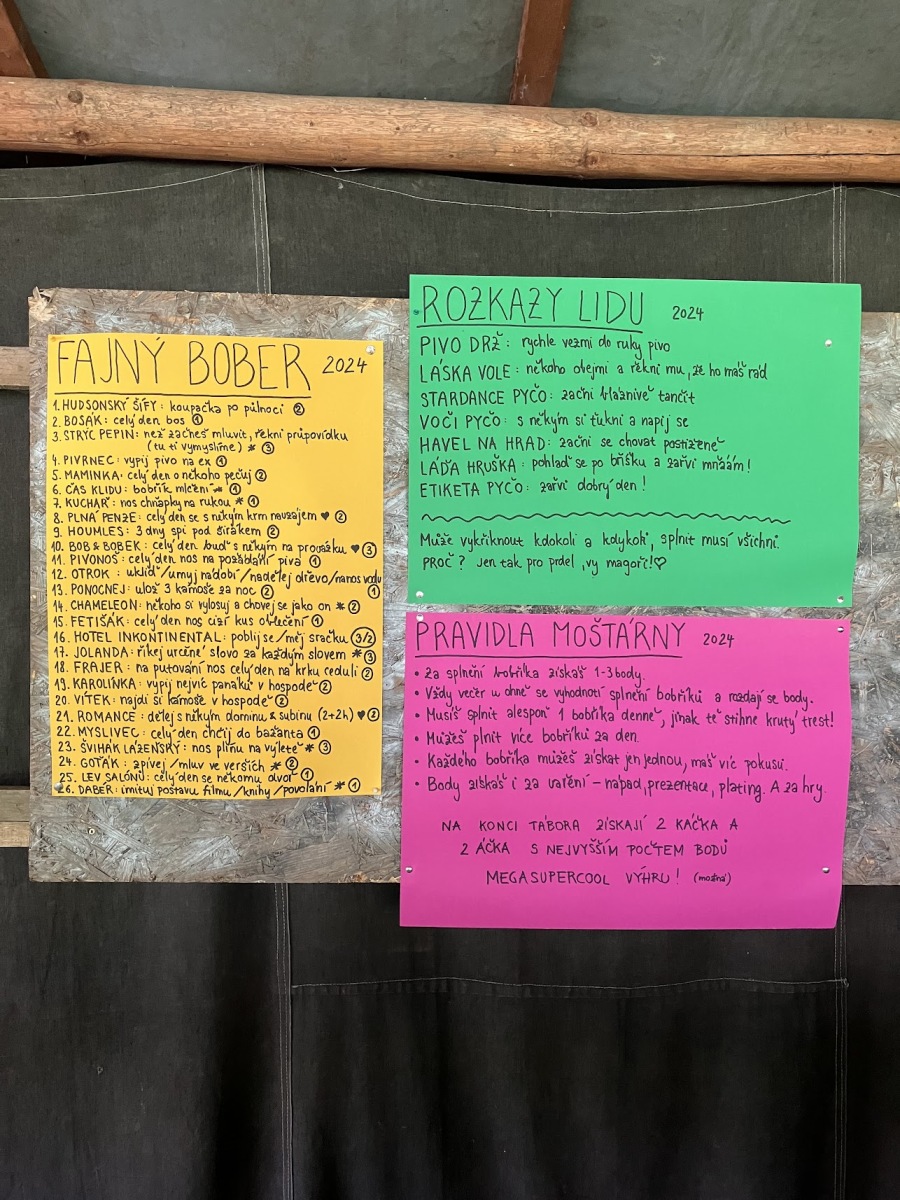 FAJNÝ BOBER 2024
1. HUDSONSKÝ ŠÍFY: koupačka po půlnoci ②
2. BOSÁK: celý den bos ①
3. STRÝC PEPIN: než začneš mluvit, řekni průpovídku
(tu ti vymyslíme) * ③
4. PIVRNEC: vypij pivo na ex ①
5. MAMINKA: celý den o někoho pečuj ②
6. ČAS KLIDU: bobřík mlčení * ①
7. KUCHAŘ: nos chňapky na rukou * ①
8. PLNÁ PENZE: celý den se s někým krm navzájem ♥ ②
9. HOUMLES: 3 dny spi pod širákem ②
10. BOB & BOBEK: celý den buď s někým na provázku ♥ ③
11. PIVONOŠ: celý den nos na požádání piva ①
12. OTROK: ukliď/umyj nádobí/nadělej dřevo/nanos vodu ①
13. PONOCNEJ: ulož 3 kamoše za noc ②
14. CHAMELEON: někoho si vylosuj a chovej se jako on * ②
15. FETIŠÁK: celý den nos cizí kus oblečení ①
16. HOTEL INKONTINENTAL: poblij se/měj sračku (3/2)
17. JOLANDA: říkej určené slovo za každým slovem * ③
18. FRAJER: na putování nos celý den na krku ceduli ②
19. KAROLÍNKA: vypij nejvíc panáků v hospodě ②
20. VÍTEK: najdi si kamoše v hospodě ②
21. ROMANCE: dělej s někým dominu & subinu (2+2h) ♥ ②
22. MYSLIVEC: celý den chčij do bažanta ①
23. ŠVIHÁK LÁZEŇSKÝ: nos plínu na výletě * ③
24. GOŤÁK: zpívej/mluv ve verších * ②
25. LEV SALÓNŮ: celý den se někomu dvoř ①
26. DABÉR: imituj postavu filmu/knihy/povolání * ①
ROZKAZY LIDU 2024
PIVO DRŽ: rychle vezmi do ruky pivo
LÁSKA VOLE: někoho obejmi a řekni mu, že ho máš rád
STARDANCE PYČO: začni bláznivě tančit
VOČI PYČO: s někým si ťukni a napij se
HAVEL NA HRAD: začni se chovat postiženě
LÁĎA HRUŠKA: pohlaď se po bříšku a zařvi mňááám!
ETIKETA PYČO: zařvi dobrý den!
Může vykřiknout kdokoli a kdykoli, splnit musí všichni.
PROČ? Jen tak pro prdel, vy magoři!♡
PRAVIDLA MOŠTÁRNY 2024
• Za splnění bobříka získáš 1-3 body.
• Vždy večer u ohně se vyhodnotí splnění bobříků a rozdají se body.
• Musíš splnit alespoň 1 bobříka denně, jinak tě stihne krutý trest!
• Můžeš plnit více bobříků za den.
• Každého bobříka můžeš získat jen jednou, máš víc pokusů.
• Body získáš i za vaření – nápad, prezentace, plating. A za hry.
NA KONCI TÁBORA ZÍSKAJÍ 2 KÁČKA A
2 ÁČKA S NEJVYŠŠÍM POČTEM BODŮ
MEGASUPERCOOL VÝHRU! (možná)